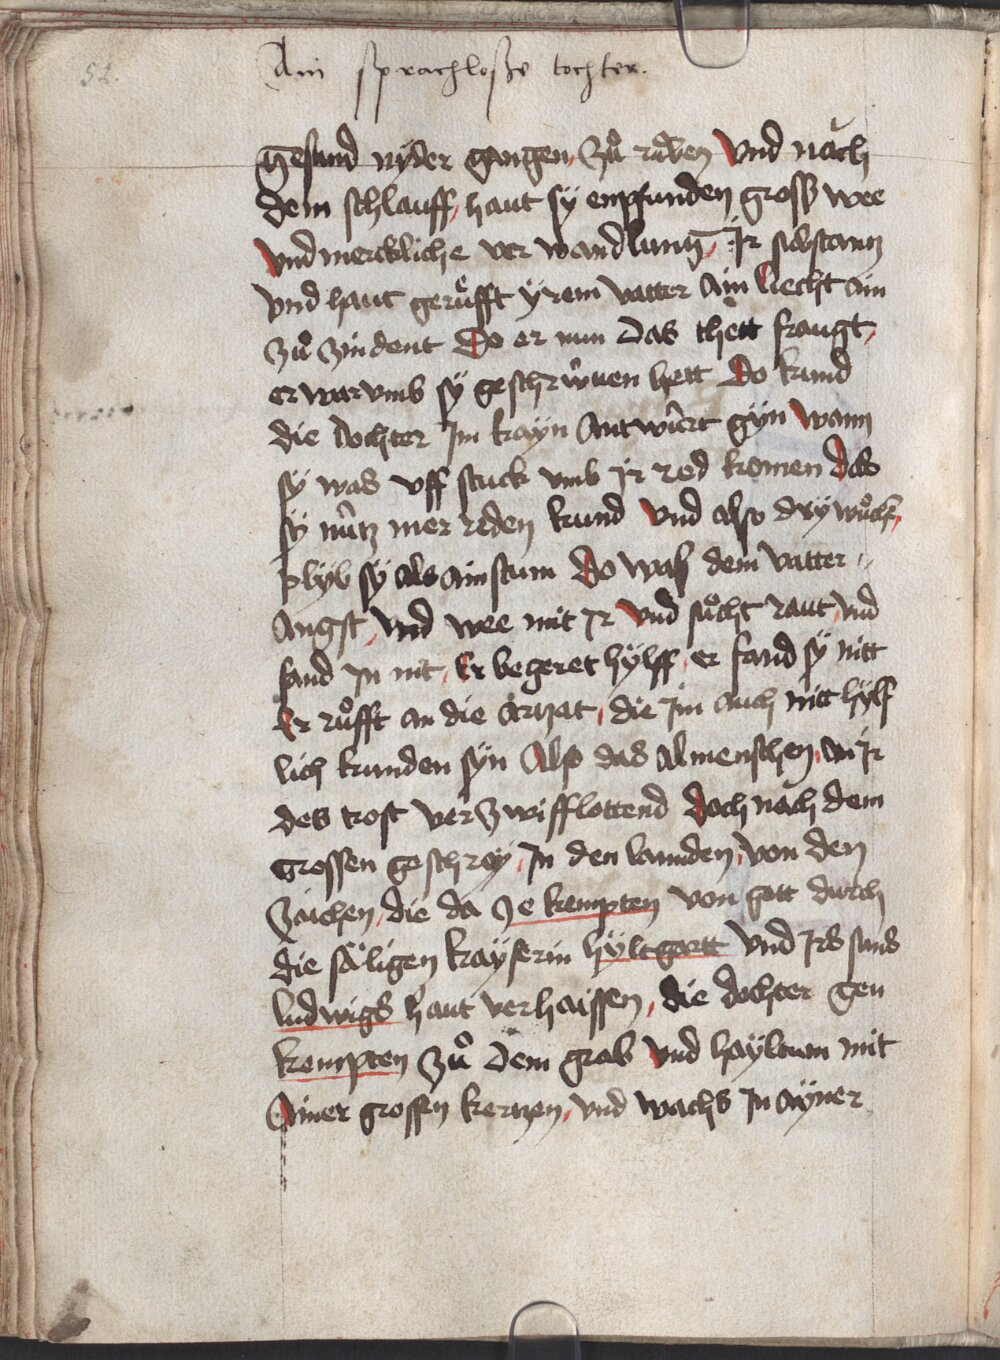 52.
Ain sprachlosze tochter.
gesund nyder gangen, zů růben Vnd nǎch
dem schlauff, haut sÿ enpfunden gross wee
Vnd merckliche ver wandlung, Ir substantz
vnd haut gerůfft ÿrem vatter Ain liecht ain
zů zindent Do er nun Das thett fraugt,
er warvmb sÿ geschrŵen hett Do kund
die dochter Im kayn Antwůrt gÿn Wann
sÿ was vff stuck vmb Ir red komen Das
sÿ nůtz mer reden kund Vnd also drÿ wůch,
plÿb sÿ als ain stum Do wasz dem vatter
Angst, Vnd wee mit Ir Vnd sůcht raut, vnd
fand In nit, Er begeret hÿlff, er fand sÿ nitt
Er růfft an die ärtzat, die Im auch nitt hÿlf
lich kunden sÿn Also das al menschen, an Ir
des trost verzwifflottend Doch nǎch dem
grossen geschrey, In den lannden, von den
zaichen, die da ze kempten von gott durch
die säligen kaÿserin hÿltgartt Vnd Irs suns
ludwigs haut verhaissen, die dochter gen
kempten zů dem grab Vnd hayltum mit
Ainer grossen kertzen, vnd wachs In aÿner